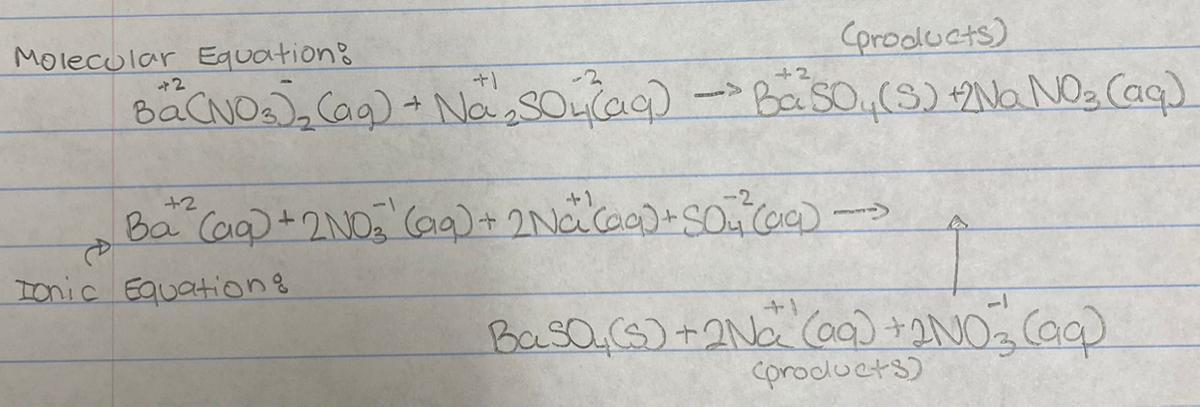 (products)
Molecular Equation:
Ba⁺²(NO₃)⁻₂(aq) + Na⁺¹₂SO₄⁻²(aq) → Ba⁺²SO₄(s) + 2NaNO₃(aq)
Ba⁺²(aq) + 2NO₃⁻¹(aq) + 2Na⁺¹(aq) + SO₄⁻²(aq) →
Ionic Equation:
BaSO₄(s) + 2Na⁺¹(aq) + 2NO₃⁻¹(aq)
(products)